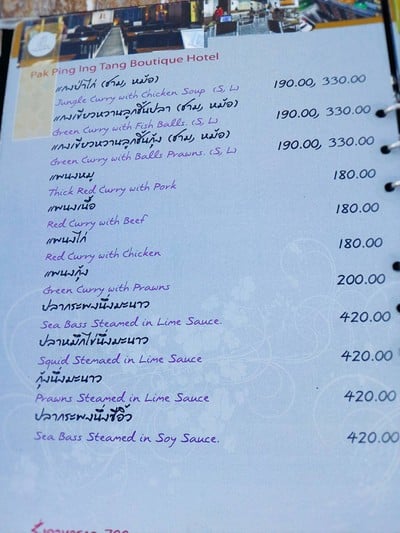 Pak Ping Ing Tang Boutique Hotel
แกงป่าไก่ (ชาม, หม้อ)
Jungle Curry with Chicken Soup (S, L) 190.00, 330.00
แกงเขียวหวานลูกชิ้นปลา (ชาม, หม้อ)
Green Curry with Fish Balls. (S, L) 190.00, 330.00
แกงเขียวหวานลูกชิ้นกุ้ง (ชาม, หม้อ)
Green Curry with Balls Prawns. (S, L) 190.00, 330.00
แพนงหมู
Thick Red Curry with Pork 180.00
แพนงเนื้อ
Red Curry with Beef 180.00
แพนงไก่
Red Curry with Chicken 180.00
แพนงกุ้ง
Green Curry with Prawns 200.00
ปลากระพงนึ่งมะนาว
Sea Bass Steamed in Lime Sauce. 420.00
ปลาหมึกไข่นึ่งมะนาว
Squid Stemaed in Lime Sauce 420.00
กุ้งนึ่งมะนาว
Prawns Steamed in Lime Sauce 420.00
ปลากระพงนึ่งซีอิ้ว
Sea Bass Steamed in Soy Sauce. 420.00